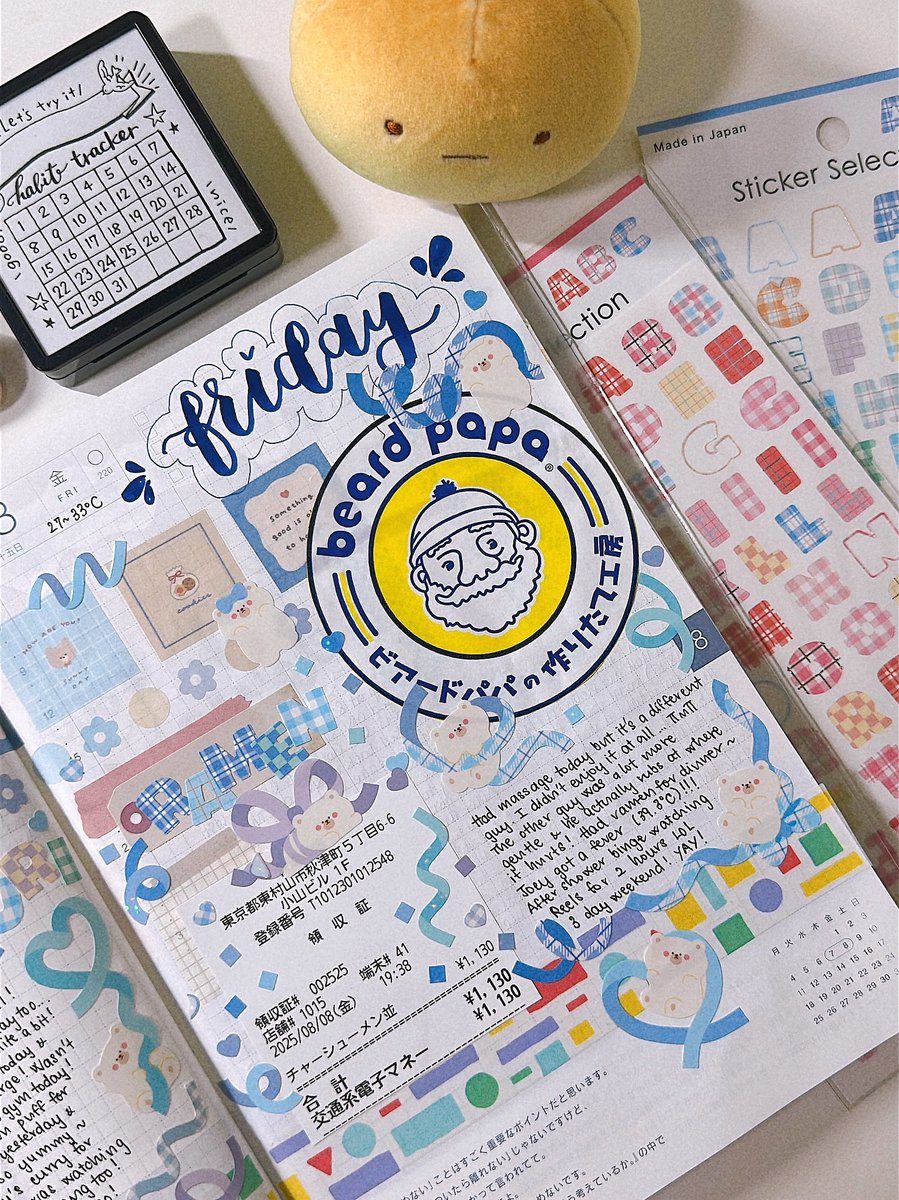 Let's try it!
habit tracker
good
1 2 3 4 5 6 7
8 9 10 11 12 13 14
15 16 17 18 19 20 21
22 23 24 25 26 27 28
29 30 31
nice!
Made in Japan
Sticker Selec
ction
ABC
friday
金
FRI
220
8
27~33°C
beard papa®
ビアードパパの作りたて工房
something
good is
cookies
HOW ARE YOU?
SUNNY
DAY
9
12
RAMEN
8
Had massage today but it's a different
guy. I didn't enjoy it at all.
The other guy was a lot more
gentle & He actually rubs at where
it hurts! Had ramen for dinner~
Joey got a fever (39.3°C)!!!
After shower, binge watching
Reels for 2 hours LOL
3 day weekend! YAY!
東京都東村山市秋津町5丁目6-6
小山ビル 1F
登録番号 T1012301012548
領 収 証
領収証# 002525 端末# 41
店舗# 1015 19:38
2025/08/08(金)
チャーシューメン並 ¥1,130
合 計 ¥1,130
交通系電子マネー ¥1,130
月 火 水 木 金 土 日
1 2 3
4 5 6 7 8 9 10
11 12 13 14 15 16 17
18 19 20 21 22 23 24
25 26 27 28 29 30 31
too...
ite a bit!
today &
rge! Wasn't
gym today!
puff for
yesterday &
so yummy~
's curry for
was watching
too!
ない」ことはすごく重要なポイントだと思います。
いたら離れない」じゃないですけど、
かって言われてて。
めないです。
う考えているか。」の中で